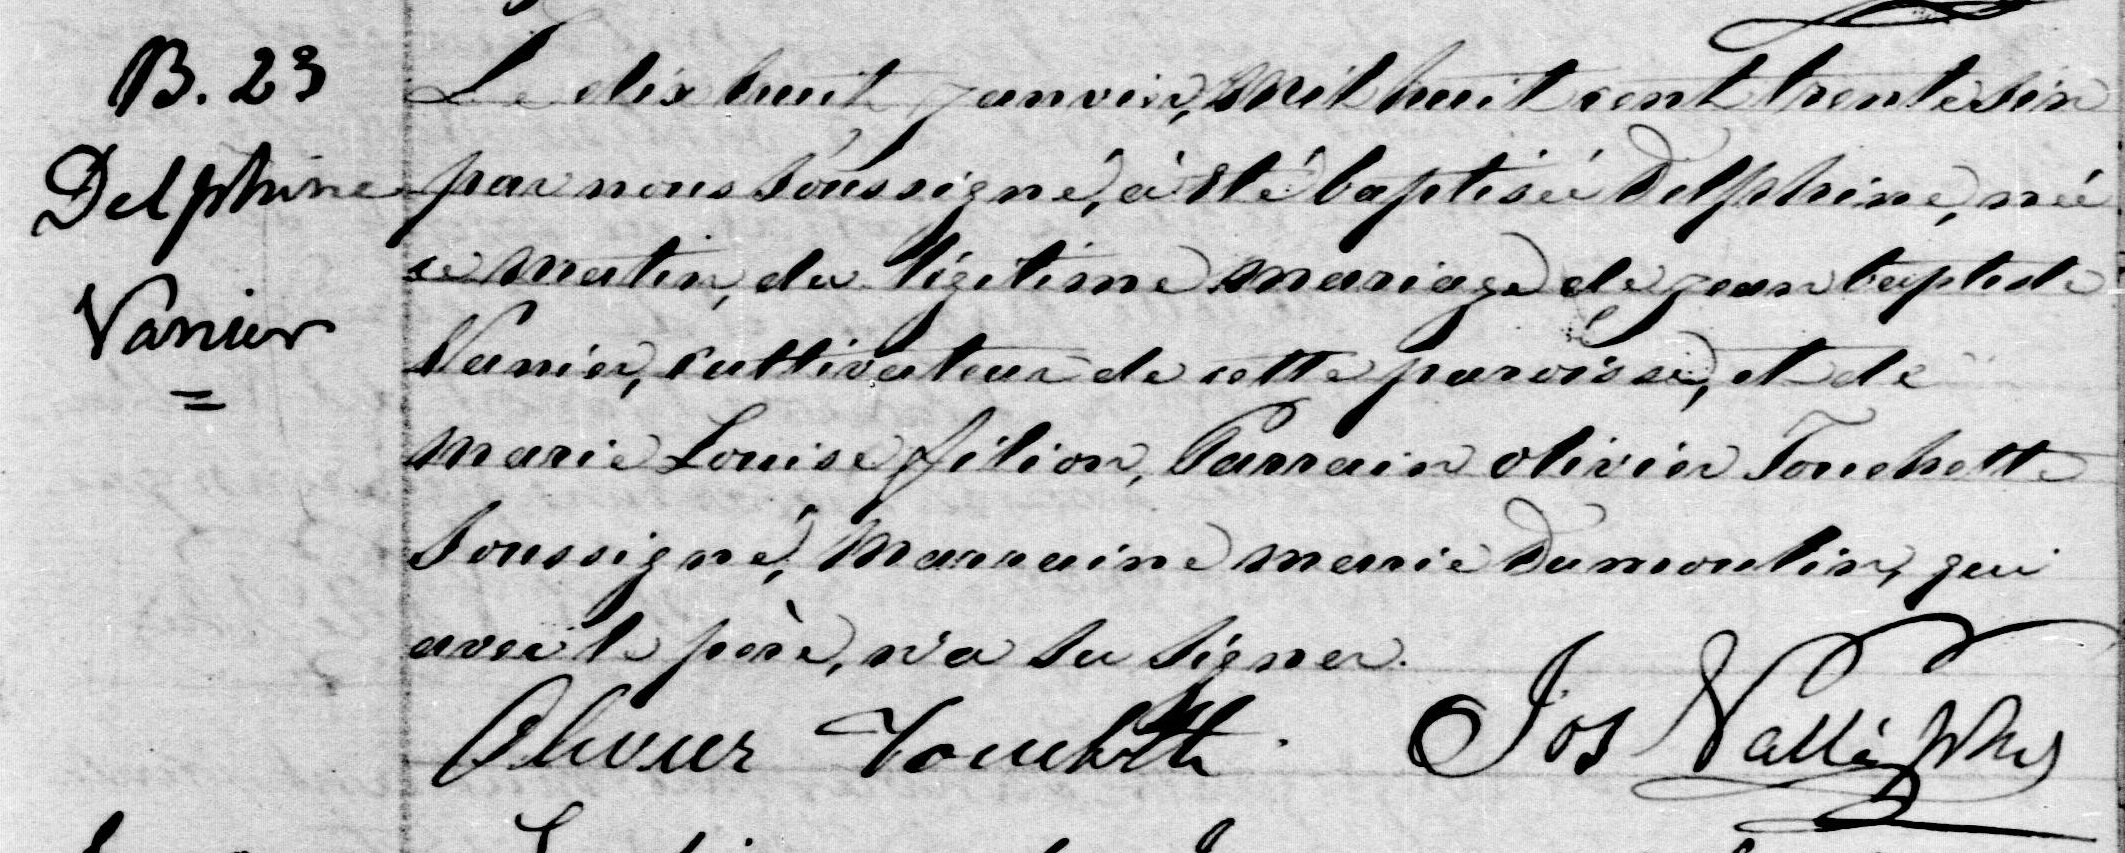 B. 23
Delphine
Vanier
=
Le dix huit janvier, Mil huit cent trente six
par nous soussigné, à été baptisée Delphine, née
ce matin, du légitime mariage de jean baptiste
Vanier, cultivateur de cette paroisse, et de
marie Louise filion, Parrain olivier Touchette
Soussigné, Marraine marie Dumoulin, qui
avec le père, n'a su signer.
Olivier Touchette. Jos Vallé Ptre